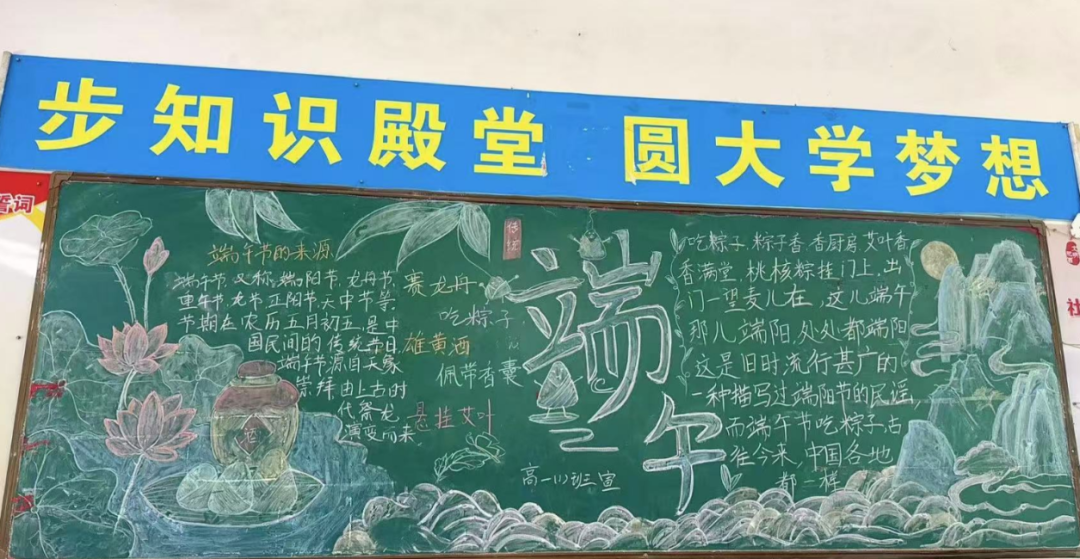 步知识殿堂 圆大学梦想
誓词
端午节的来源
端午节,又称端阳节,龙舟节,
重午节,龙节,正阳节,天中节等,
节期在农历五月初五,是中
国民间的传统节日,
端午节源自天象
崇拜由上古时
代祭龙
演变而来
赛龙舟
吃粽子,
雄黄酒
佩带香囊
悬挂艾叶
酒
端午
高一(1)班宣
吃粽子,粽子香,香厨房,艾叶香
香满堂,桃核粽挂门上,出
门一望麦儿在,这儿端午
那儿端阳,处处都端阳
这是旧时流行甚广的
一种描写过端阳节的民谣,
而端午节吃粽子,古
往今来,中国各地
都一样
社